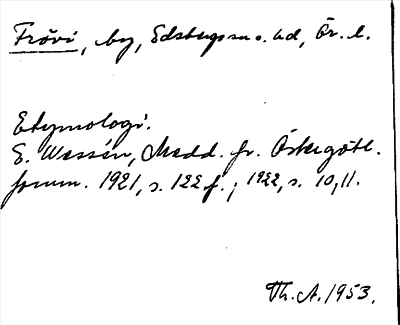 Frövi, by, Edsbergs sn o. hd, Ör. l.
Etymologi.
E. Wessén, Medd. fr. Östergötl.
fornm. 1921, s. 122 f.; 1922, s. 10, 11.
Th. A. 1953.